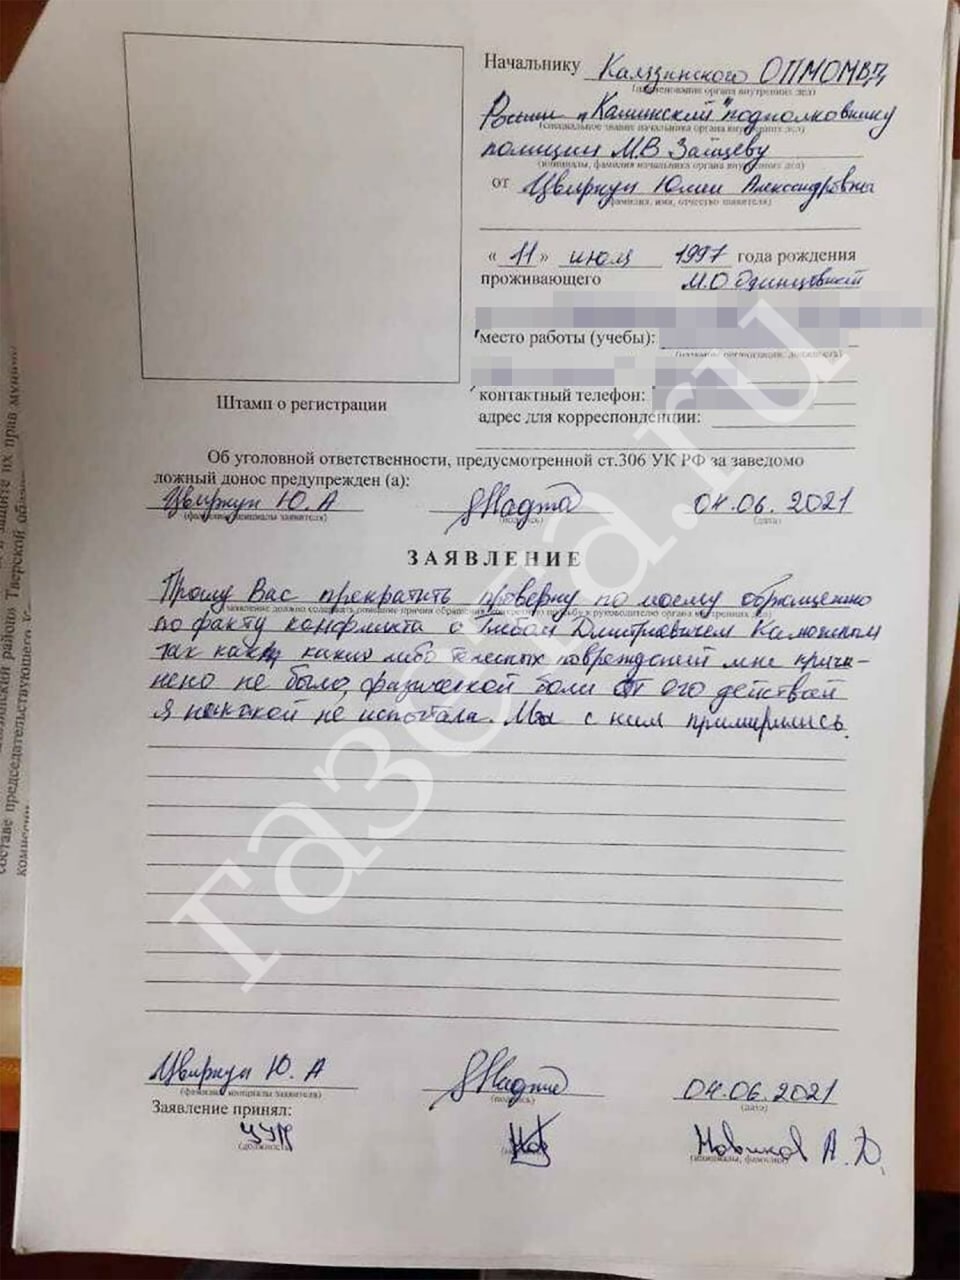 Начальнику Калязинского ОПМОМВД
(наименование органа внутренних дел)
России "Кашинский" подполковнику
(специальное звание начальника органа внутренних дел)
полиции М.В Зайцеву
(инициалы, фамилия начальника органа внутренних дел)
от Цвиркун Юлии Александровны
(фамилия, имя, отчество заявителя)
« 11 » июля 1997 года рождения
проживающего М.О Одинцовский
место работы (учебы):
(название организации, должность)
контактный телефон:
адрес для корреспонденции:
Штамп о регистрации
Об уголовной ответственности, предусмотренной ст.306 УК РФ за заведомо
ложный донос предупрежден (а):
Цвиркун Ю. А 04.06.2021
(фамилия, инициалы заявителя) (подпись) (дата)
ЗАЯВЛЕНИЕ
Прошу Вас прекратить проверку по моему обращению
заявление должно содержать описание причин обращения, конкретную просьбу к руководителю органа внутренних дел)
по факту конфликта с Глебом Дмитриевичем Калюжным
так как каких либо телесных повреждений мне причи-
нено не было, физической боли от его действий
я никакой не испытала. Мы с ним примирились.
Цвиркун Ю. А 04.06.2021
(фамилия, инициалы заявителя) (подпись) (дата)
Заявление принял:
УУП Новиков А.Д.
(должность) (инициалы, фамилия)
газета.ru
защите их прав муни
района Тверской обла
составе председательствующего
комиссии